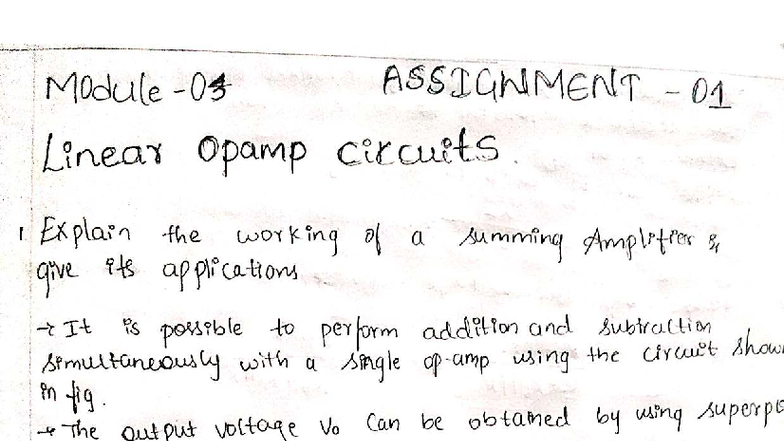 Module -03 ASSIGNMENT - 01
Linear Opamp circuits.
1 Explain the working of a summing Amplifier &
give its applications
→ It is possible to perform addition and subtraction
simultaneously with a single op-amp using the circuit show
in fig.
→ The output voltage Vo can be obtained by using superpo